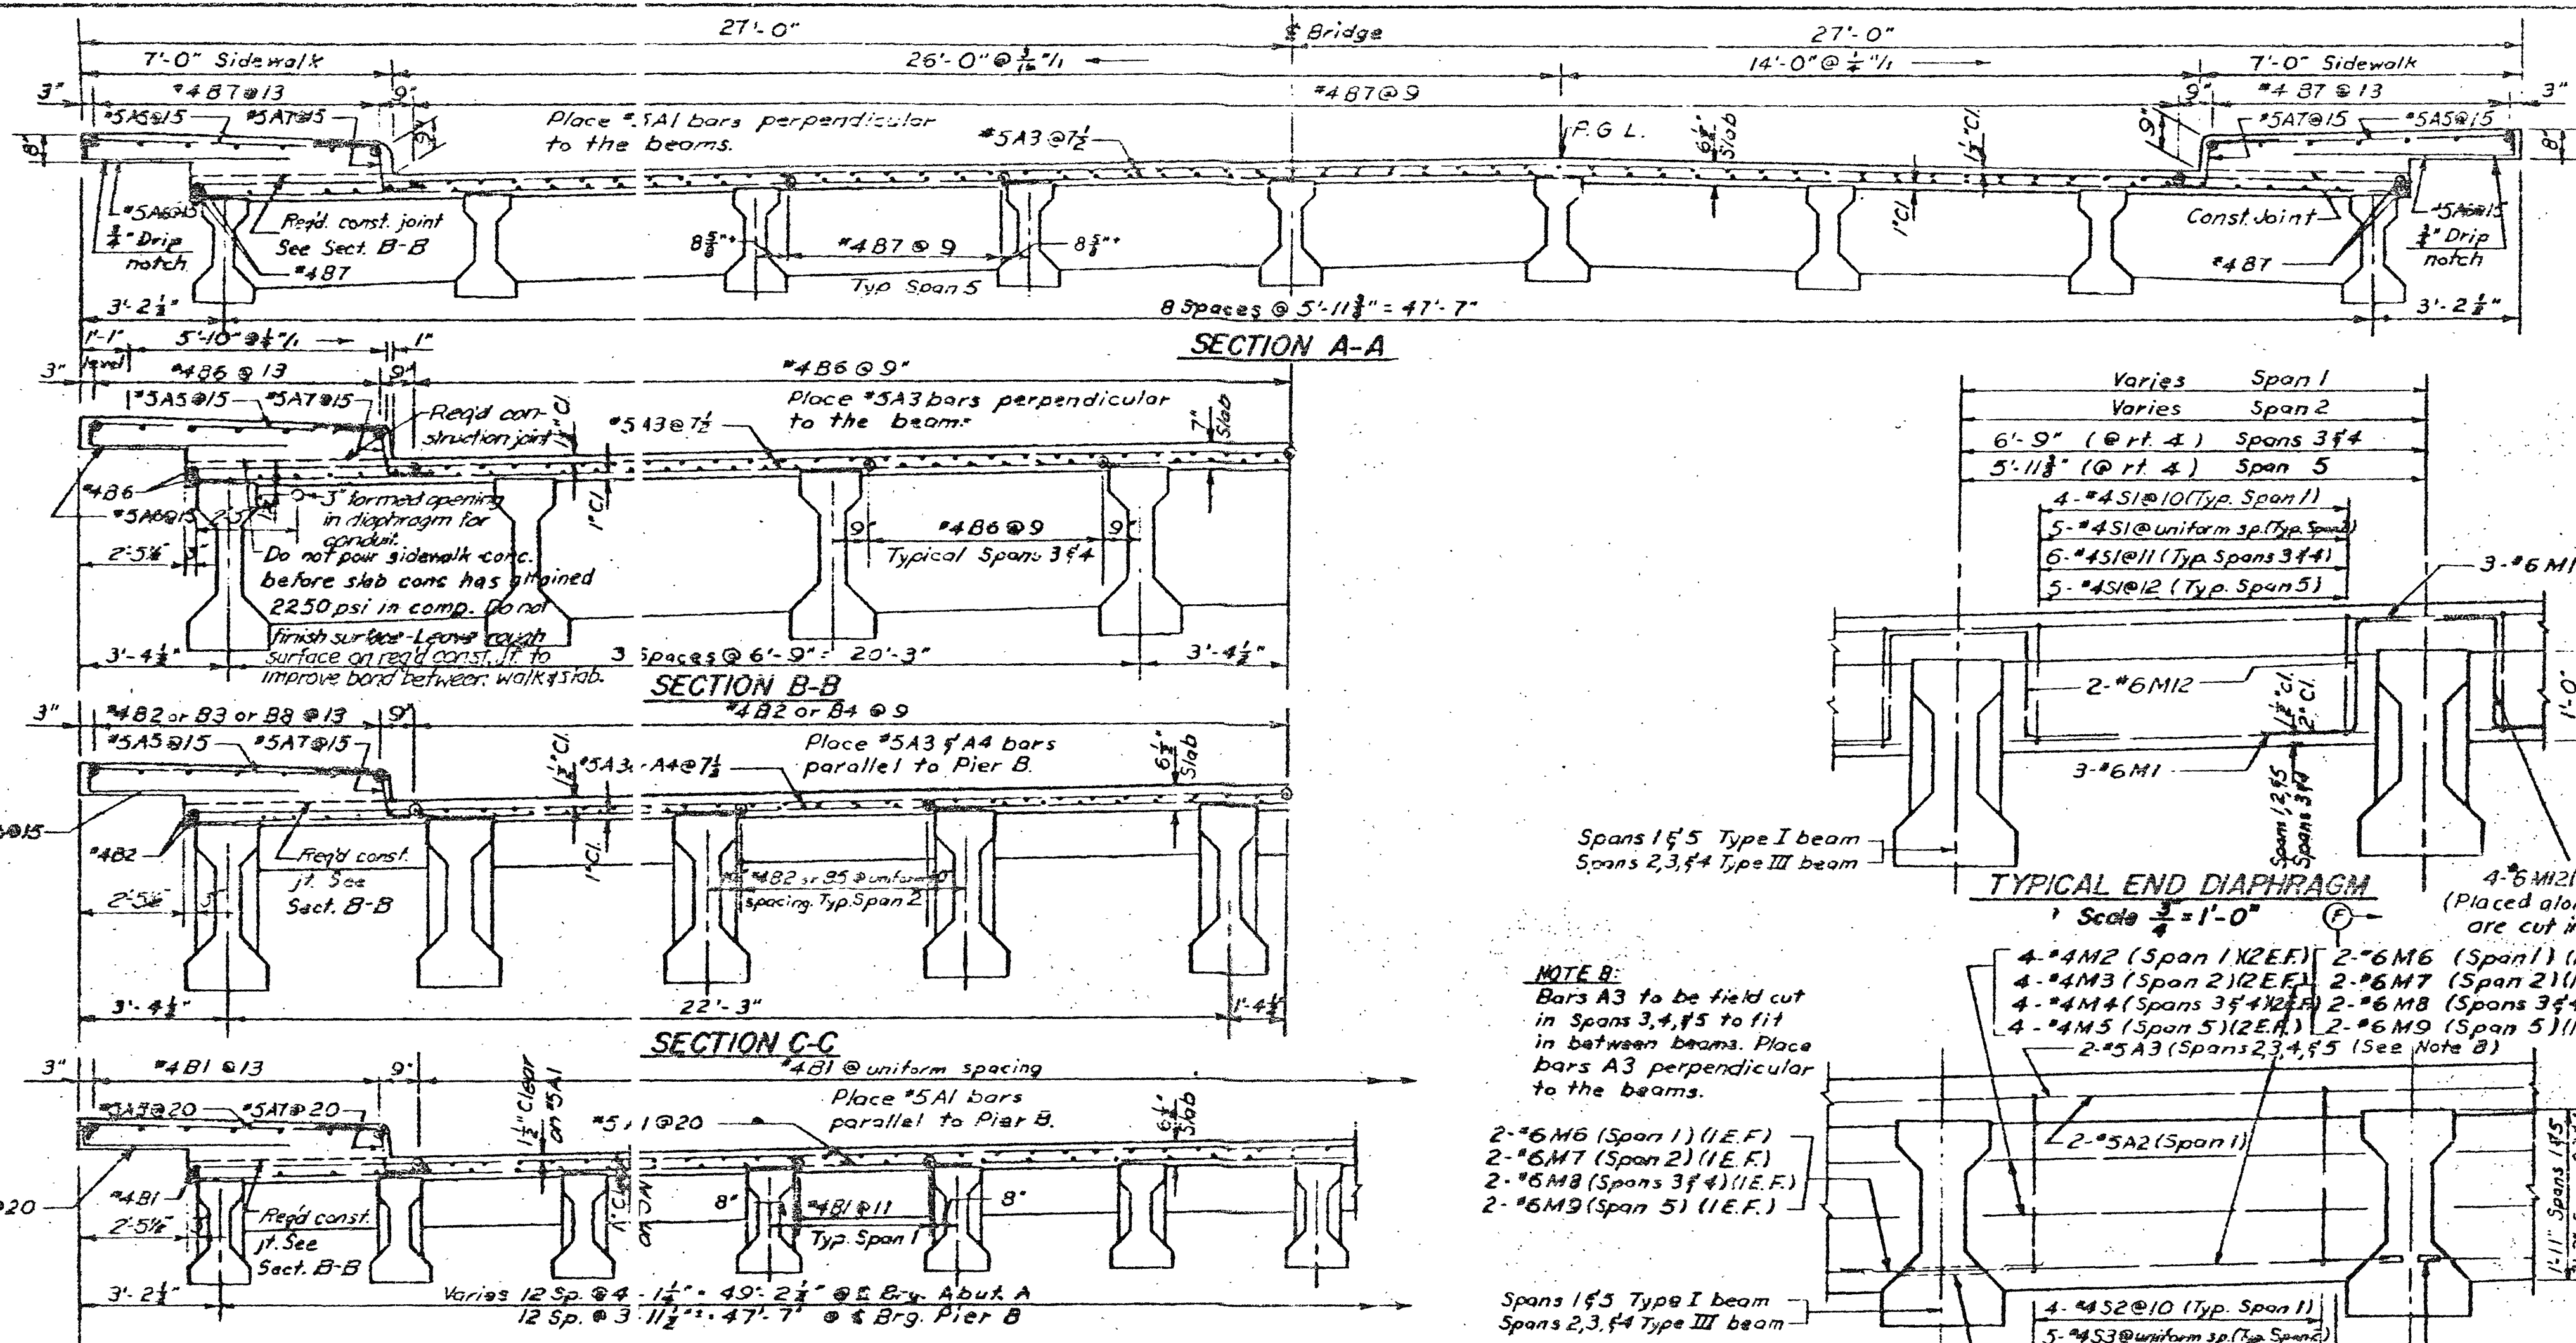 27'-0"
℄ Bridge
27'-0"
7'-0" Sidewalk
26'-0" @ 3/16"/1
14'-0" @ 1/4"/1
7'-0" Sidewalk
3"
#4B7@13
9"
#4B7@9
9"
#4B7@13
3"
#5A5@15
#5A7@15
Place #5A1 bars perpendicular
to the beams.
#5A3@7½
P.G.L.
6½"
Slab
1½"Cl.
9"
#5A7@15
#5A5@15
8"
9"
8"
#5A6@15
¾" Drip
notch
Req'd. const. joint
See Sect. B-B
#4B7
8⅝"+
#4B7@9
8⅝"+
Typ Span 5
1"Cl.
Const. Joint
#4B7
#5A6@15
¾" Drip
notch
3'-2½"
8 Spaces @ 5'-11⅜" = 47'-7"
3'-2½"
SECTION A-A
1'-1"
level
5'-10" @ ¼"/1
1"
3"
#4B6@13
9"
#4B6@9"
#5A5@15
#5A7@15
Req'd con-
struction joint
1½"Cl.
#5A3@7½
Place #5A3 bars perpendicular
to the beams
7"
Slab
#4B6
#5A6@15
3" formed opening
in diaphragm for
conduit.
1"Cl.
9"
#4B6@9
9"
Typical Spans 3 & 4
2'-5½"
3"
Do not pour sidewalk conc.
before slab conc has attained
2250 psi in comp. Do not
finish surface-Leave rough
surface on req'd const. jt. to
improve bond between walk & slab.
3'-4½"
3 Spaces @ 6'-9" = 20'-3"
3'-4½"
SECTION B-B
3"
#4B2 or B3 or B8 @13
9"
#4B2 or B4 @9
#5A5@15
#5A7@15
1½"Cl.
#5A3 - A4@7½
Place #5A3 & A4 bars
parallel to Pier B.
6½"
Slab
@15
#4B2
Req'd const.
jt. See
Sect. B-B
1"Cl.
#4B2 or B5 @ uniform
spacing. Typ. Span 2
2'-5½"
3"
3'-4½"
22'-3"
1'-4½"
SECTION C-C
3"
#4B1@13
9"
#4B1 @ uniform spacing
#5A5@20
#5A7@20
1½" Clear
on #5A1
#5A1@20
Place #5A1 bars
parallel to Pier B.
6½"
Slab
@20
#4B1
Req'd const.
jt. See
Sect. B-B
2'-5½"
8"
#4B1@11
8"
Typ. Span 1
3'-2½"
Varies 12 Sp. @ 4'-1¼" = 49'-2½" @ ℄ Brg. Abut. A
12 Sp. @ 3'-11½" = 47'-7" @ ℄ Brg. Pier B
Varies Span 1
Varies Span 2
6'-9" (@ rt. ∠) Spans 3 & 4
5'-11⅜" (@ rt. ∠) Span 5
4-#4S1@10 (Typ. Span 1)
5-#4S1@uniform sp. (Typ. Span 2)
6-#4S1@11 (Typ. Spans 3 & 4)
5-#4S1@12 (Typ. Span 5)
3-#6M1
2-#6M12
3-#6M1
1½"Cl.
2"Cl.
Spans 1,2,&5
Spans 3 & 4
1'-0"
Spans 1 & 5 Type I beam
Spans 2,3,&4 Type III beam
TYPICAL END DIAPHRAGM
Scale ¾ = 1'-0"
F
4-#6M12
(Placed alo
are cut i
NOTE B:
Bars A3 to be field cut
in Spans 3,4,&5 to fit
in between beams. Place
bars A3 perpendicular
to the beams.
4-#4M2 (Span 1)(2E.F.)
4-#4M3 (Span 2)(2E.F.)
4-#4M4 (Spans 3 & 4)(2E.F.)
4-#4M5 (Span 5)(2E.F.)
2-#6M6 (Span 1) (1
2-#6M7 (Span 2) (1
2-#6M8 (Spans 3 & 4
2-#6M9 (Span 5) (1
2-#5A3 (Spans 2,3,4,&5 (See Note B)
2-#5A2 (Span 1)
2-#6M6 (Span 1) (1E.F.)
2-#6M7 (Span 2) (1E.F.)
2-#6M8 (Spans 3 & 4) (1E.F.)
2-#6M9 (Span 5) (1E.F.)
1'-11" Spans 1 & 5
Spans 1 & 5 Type I beam
Spans 2,3,&4 Type III beam
4-#4S2@10 (Typ. Span 1)
5-#4S3@uniform sp. (Typ. Span 2)